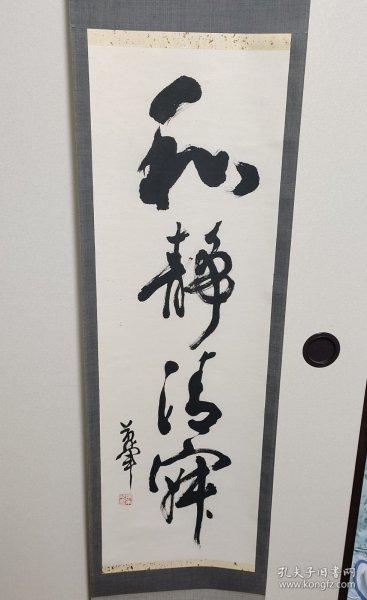 和静清寂
孔夫子旧书网
www.kongfz.com